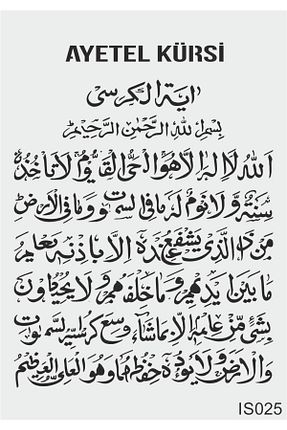 AYETEL KÜRSİ
اية الكرسى
بسم الله الرحمن الرحيم
الله لا اله الا هو الحى القيوم لا تأخذه
سنة ولا نوم له ما فى السموات وما فى الارض
من ذا الذى يشفع عنده الا باذنه يعلم
ما بين ايديهم وما خلفهم ولا يحيطون
بشئ من علمه الا بما شاء وسع كرسيه السموات
والارض ولا يؤده حفظهما وهو العلى العظيم
IS025